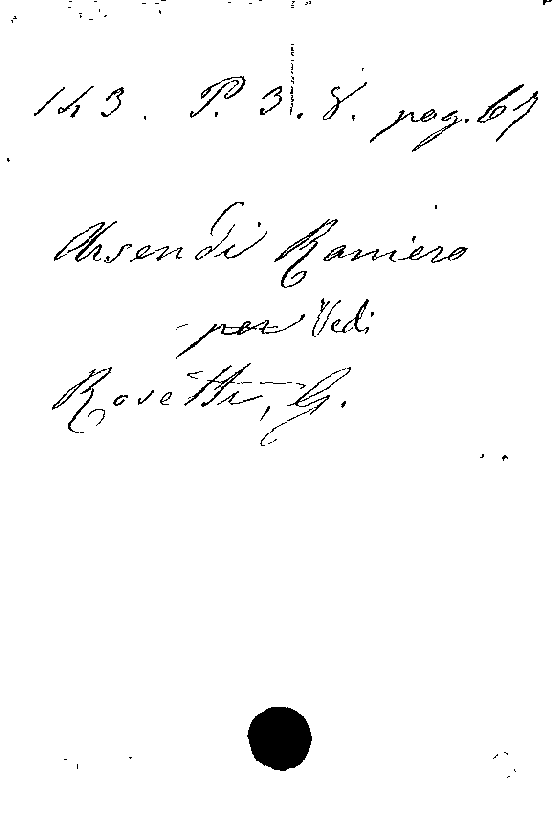 143. P. 3. 8. pag. 67
Arsendi Raniero
- per Vedi
Rosetti, G.